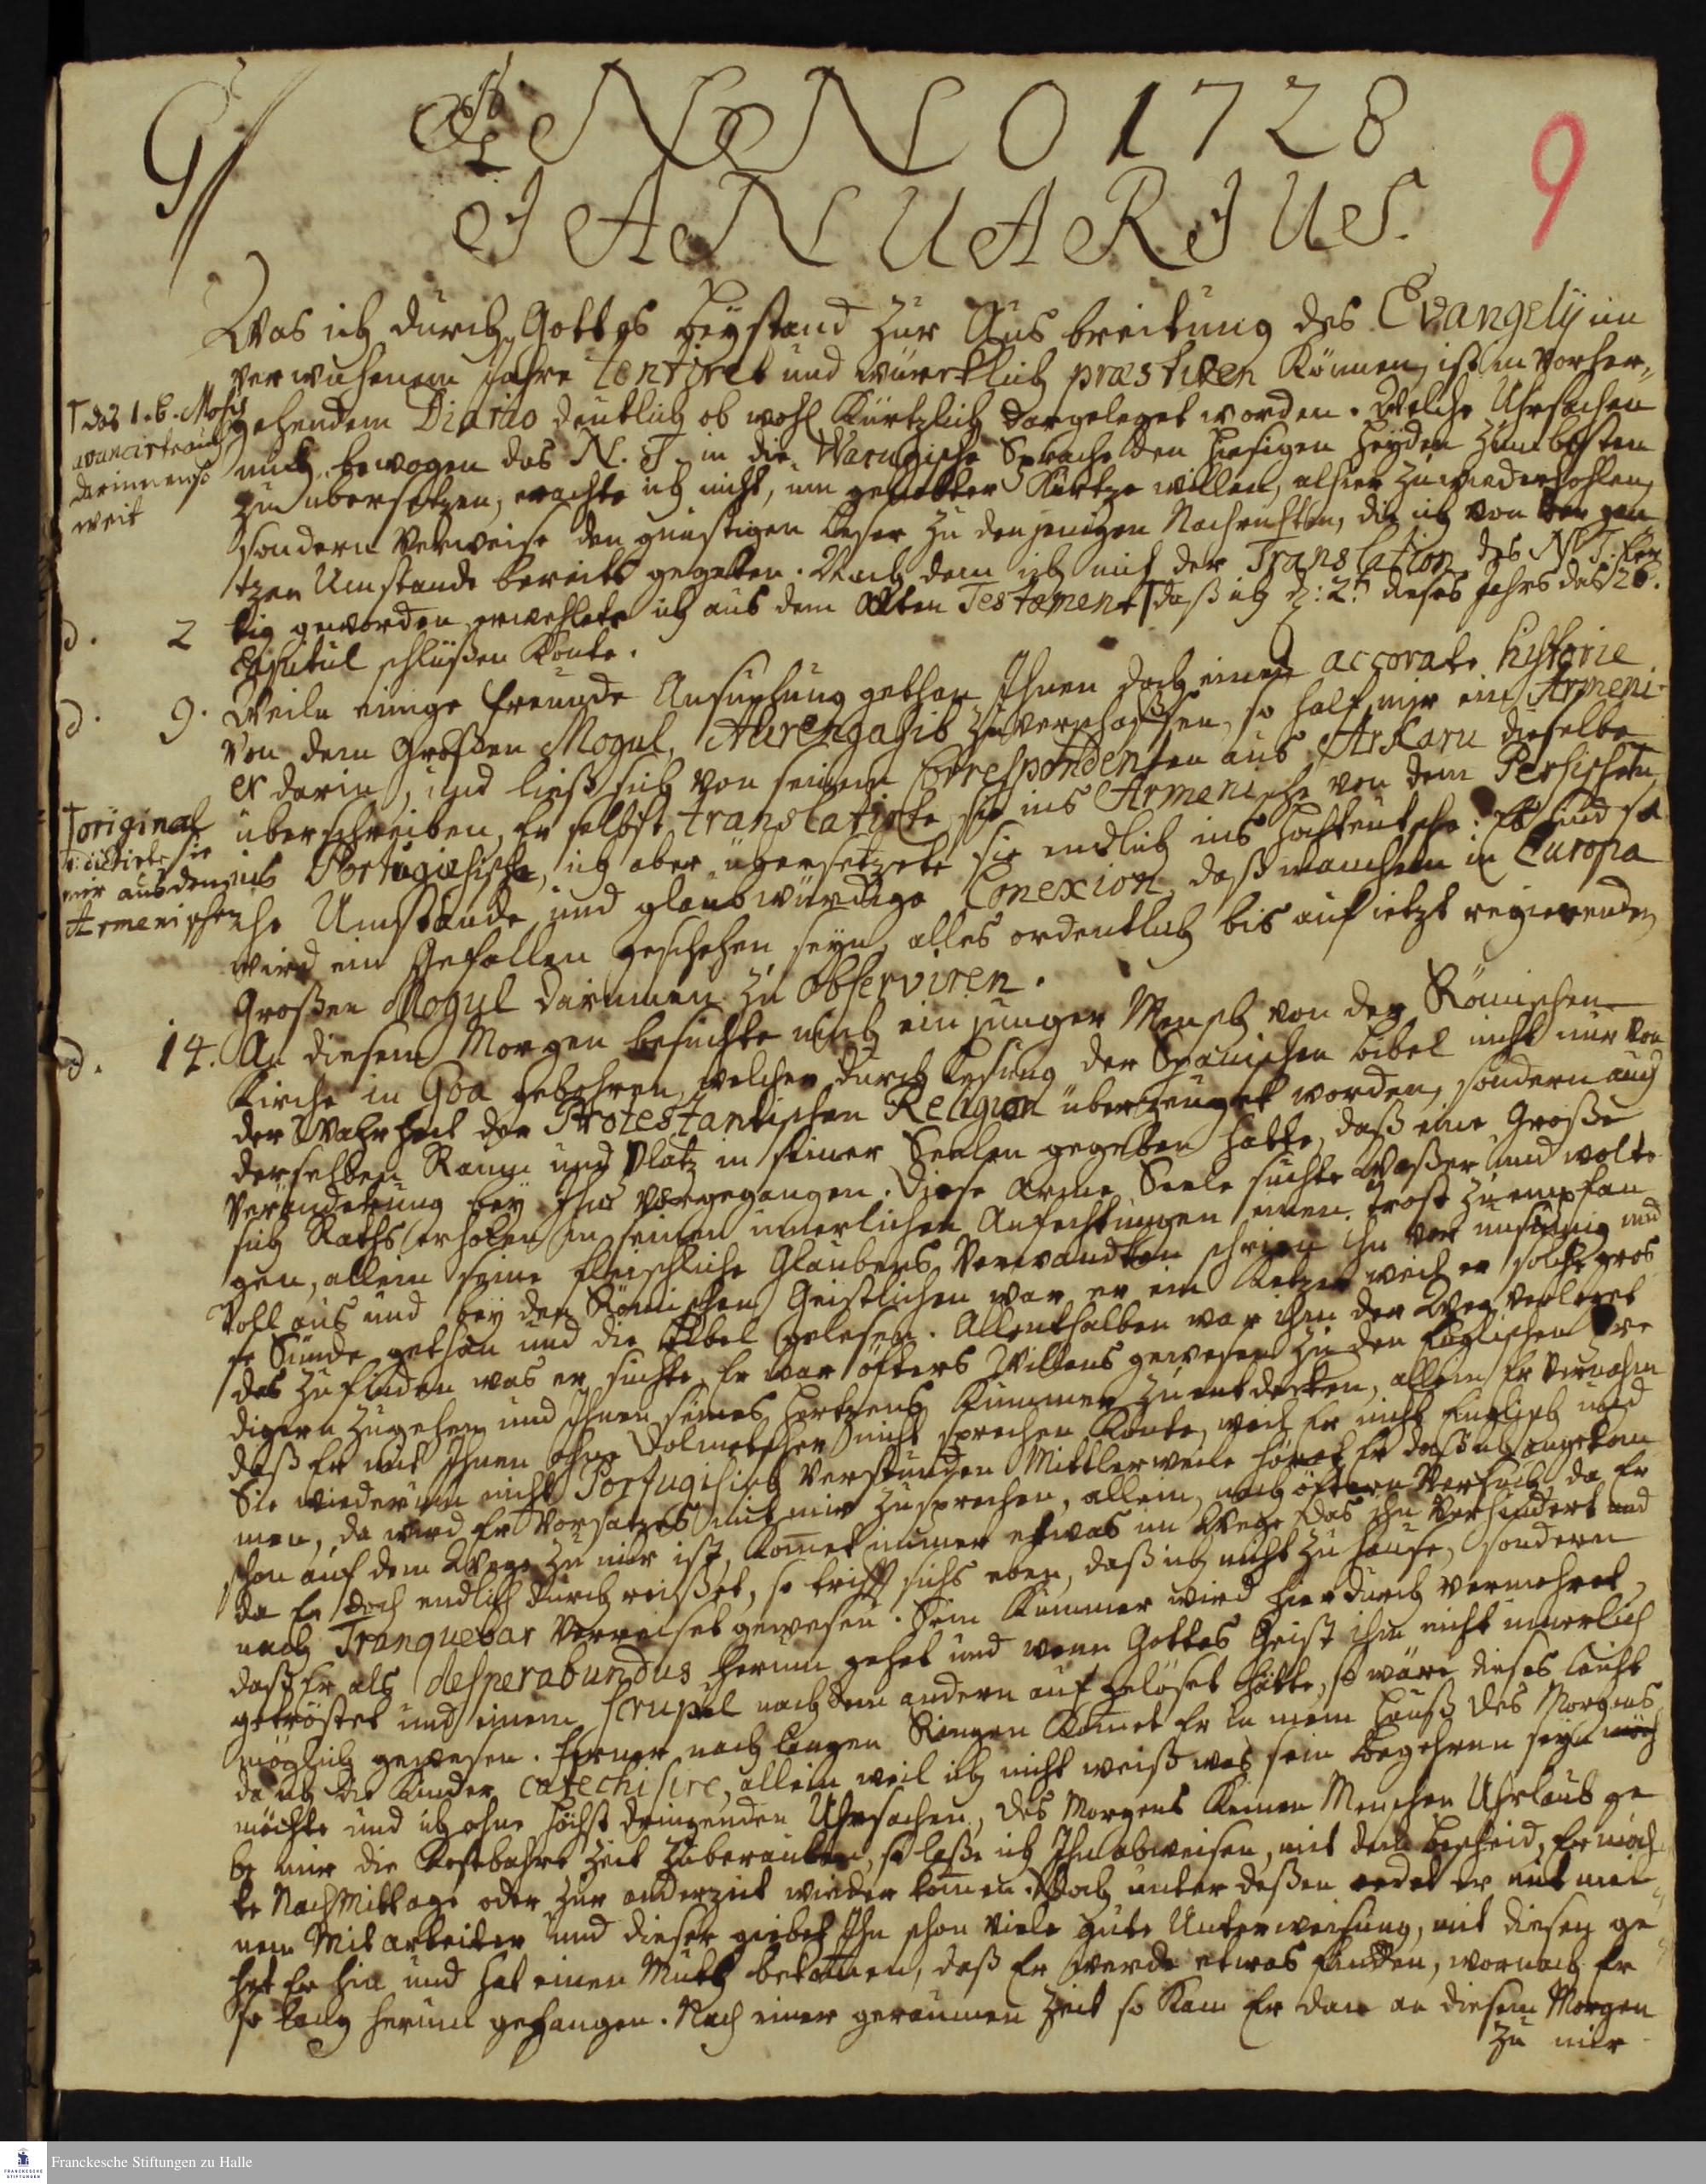 9
ANNO 1728
9
JANUARIUS.
Was ich durch Gottes Beystand zur Ausbreitung des Evangelij im
verwichenem Jahre tentiret und würcklich præstiren können, ist in vorher-
gehendem Diario deutlich ob wohl kürtzlich dargeleget worden. Welche Uhrsachen
mich bewogen das N. T. in die Warugische Sprache den hiesigen Heyden zum besten
zu übersetzen, erachte ich nicht, um geliebter Kürtze willen, alhier zu wiederhohlen,
sondern verweise den günstigen Leser zu denjenigen Nachrichten, die ich von der gan
tzen Umstande bereits gegeben. Nach dem ich mit der Translation des N. T. fer
d. 2 tig geworden erwehlete ich aus dem Alten Testament † daß ich d: 2t. dieses Jahrs das 26.
Capitul schlüßen konte.
† das 1. B. Mosis
avancirte auch
darinnen so
weit
d. 9. Weiln einige Freunde Ansuchung gethan Ihnen doch eine accorate historie
von dem Großen Mogul, Aurengagib zu verschaffen, so half mir ein Armeni-
er darin, und ließ sich von seinem Correspondenten aus Arkaru dieselbe
überschreiben, Er selbst translatirte sie ins Armenische von dem Persischen
† original
u: dictirte sie
mir aus dem
Armenischen
ins Portugiesische, ich aber übersetzete sie endlich ins Hochteutsche: Es sind sol
che Umstände und glaubwürdige Conexion, daß manchem in Europa
wird ein Gefallen geschehen seyn, alles ordentlich bis auf ietzt regierenden
Großen Mogul darinnen zu observiren.
d. 14. An diesem Morgen besuchte mich ein junger Mensch von der Römischen
Kirche in Goa gebohren, welcher durch Lesung der Spanischen Bibel nicht nur von
der Wahrheit der Protestantischen Religion überzeuget worden, sondern auch
derselben Raum und Platz in seiner Seelen gegeben hatte, daß eine Große
Veränderung bey Ihm vorgegangen. Diese arme Seele suchte Waßer und wolte
sich Raths erholen in seinen innerlichen Anfechtungen einen Trost zu empfan
gen, allein seine fleischliche Glaubens Verwandten schrien ihn vor unsinnig und
toll aus und bey den Römischen Geistlichen war er ein Ketzer weil er solche gros
se Sünde gethan und die Bibel gelesen. Allenthalben war ihm der Weg verleget
das zu finden was er suchte, Er war öfters Willens gewesen zu den Englischen Pre
digern zu gehen und Ihnen seines Hertzens Kummer zu entdecken, allein Er vernahm
daß Er mit Ihnen ohne Dolmetscher nicht sprechen konte, weil Er nicht Englisch und
Sie wiederum nicht Portugisisch verstunden Mittlerweile höret Er daß ich angekom
men, da wird Er Vorsatzes mit mir zu sprechen, allein, nach öftern Versuch da Er
schon auf dem Wege zu mir ist, komet immer etwas im Wege das Ihn verhindert und
da Er doch endlich durchreißet, so trifft sichs eben, daß ich nicht zu Hause, sondern
nach Tranquebar verreiset gewesen. Sein Kummer wird hierdurch vermehret,
daß Er als desperabundus herum gehet und wenn Gottes Geist ihn nicht innerlich
getröstet und einem scrupel nach dem andern aufgelöset hätte, so wäre dieses leicht
möglich gewesen. Ferner nach langen Ringen komet Er in mein Hauß des Morgens
da ich die Kinder catechisire, allein weil ich nicht weiß was sein Begehren seyn möch
möchte und ich ohne höchst dringenden Uhrsachen, des Morgens keinen Menschen Uhrlaub ge
be mir die kostbahre Zeit zu berauben, so laße ich Ihn abweisen, mit dem Bescheid, Er möch
te Nach Mittage oder zur anderzeit wieder komen. Doch unter deßen redet er mit mei
nem Mitarbeiter und dieser giebet Ihn schon viele gute Unterweisung, mit diesen ge
het Er hin und hat einen Muth bekomen, daß Er werde etwas finden, wornach Er
so lang herum gegangen. Nach einer geraumen Zeit so kam Er dan an diesem Morgen
zu mir
Franckesche Stiftungen zu Halle